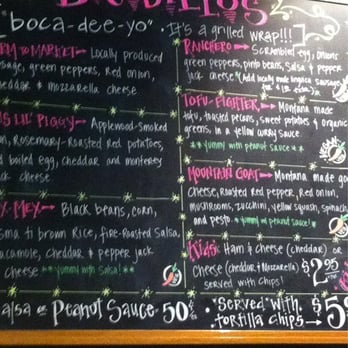 "boca-dee-yo" · It's a grilled wrap!!!
Locally produced
green peppers, red onion,
cheddar & mozzarella cheese
Lil Piggy → Applewood-Smoked
Rosemary-Roasted Red potatoes,
boiled egg, cheddar and monterey
jack cheese
Black beans, corn,
brown Rice, fire-Roasted Salsa,
cheddar & pepper jack
cheese **yummy with salsa!**
Salsa or Peanut Sauce 50¢
Ranchero → Scrambled egg, onion
green peppers, pinto beans, Salsa & pepper
jack cheese * Add locally made
Tofu-Fighter → Montana made
tofu, toasted pecans, sweet potatoes & organic
greens, in a yellow curry sauce.
**yummy with peanut sauce**
Mountain Goat → Montana made goat
cheese, Roasted Red pepper, Red onion,
mushrooms, zucchini, yellow squash, spinach
and pesto *yummy with peanut sauce!
Kids: Ham & cheese (cheddar) or
cheese (cheddar & Mozzarella) $2.95
served with chips!
· Served with
tortilla chips → $5